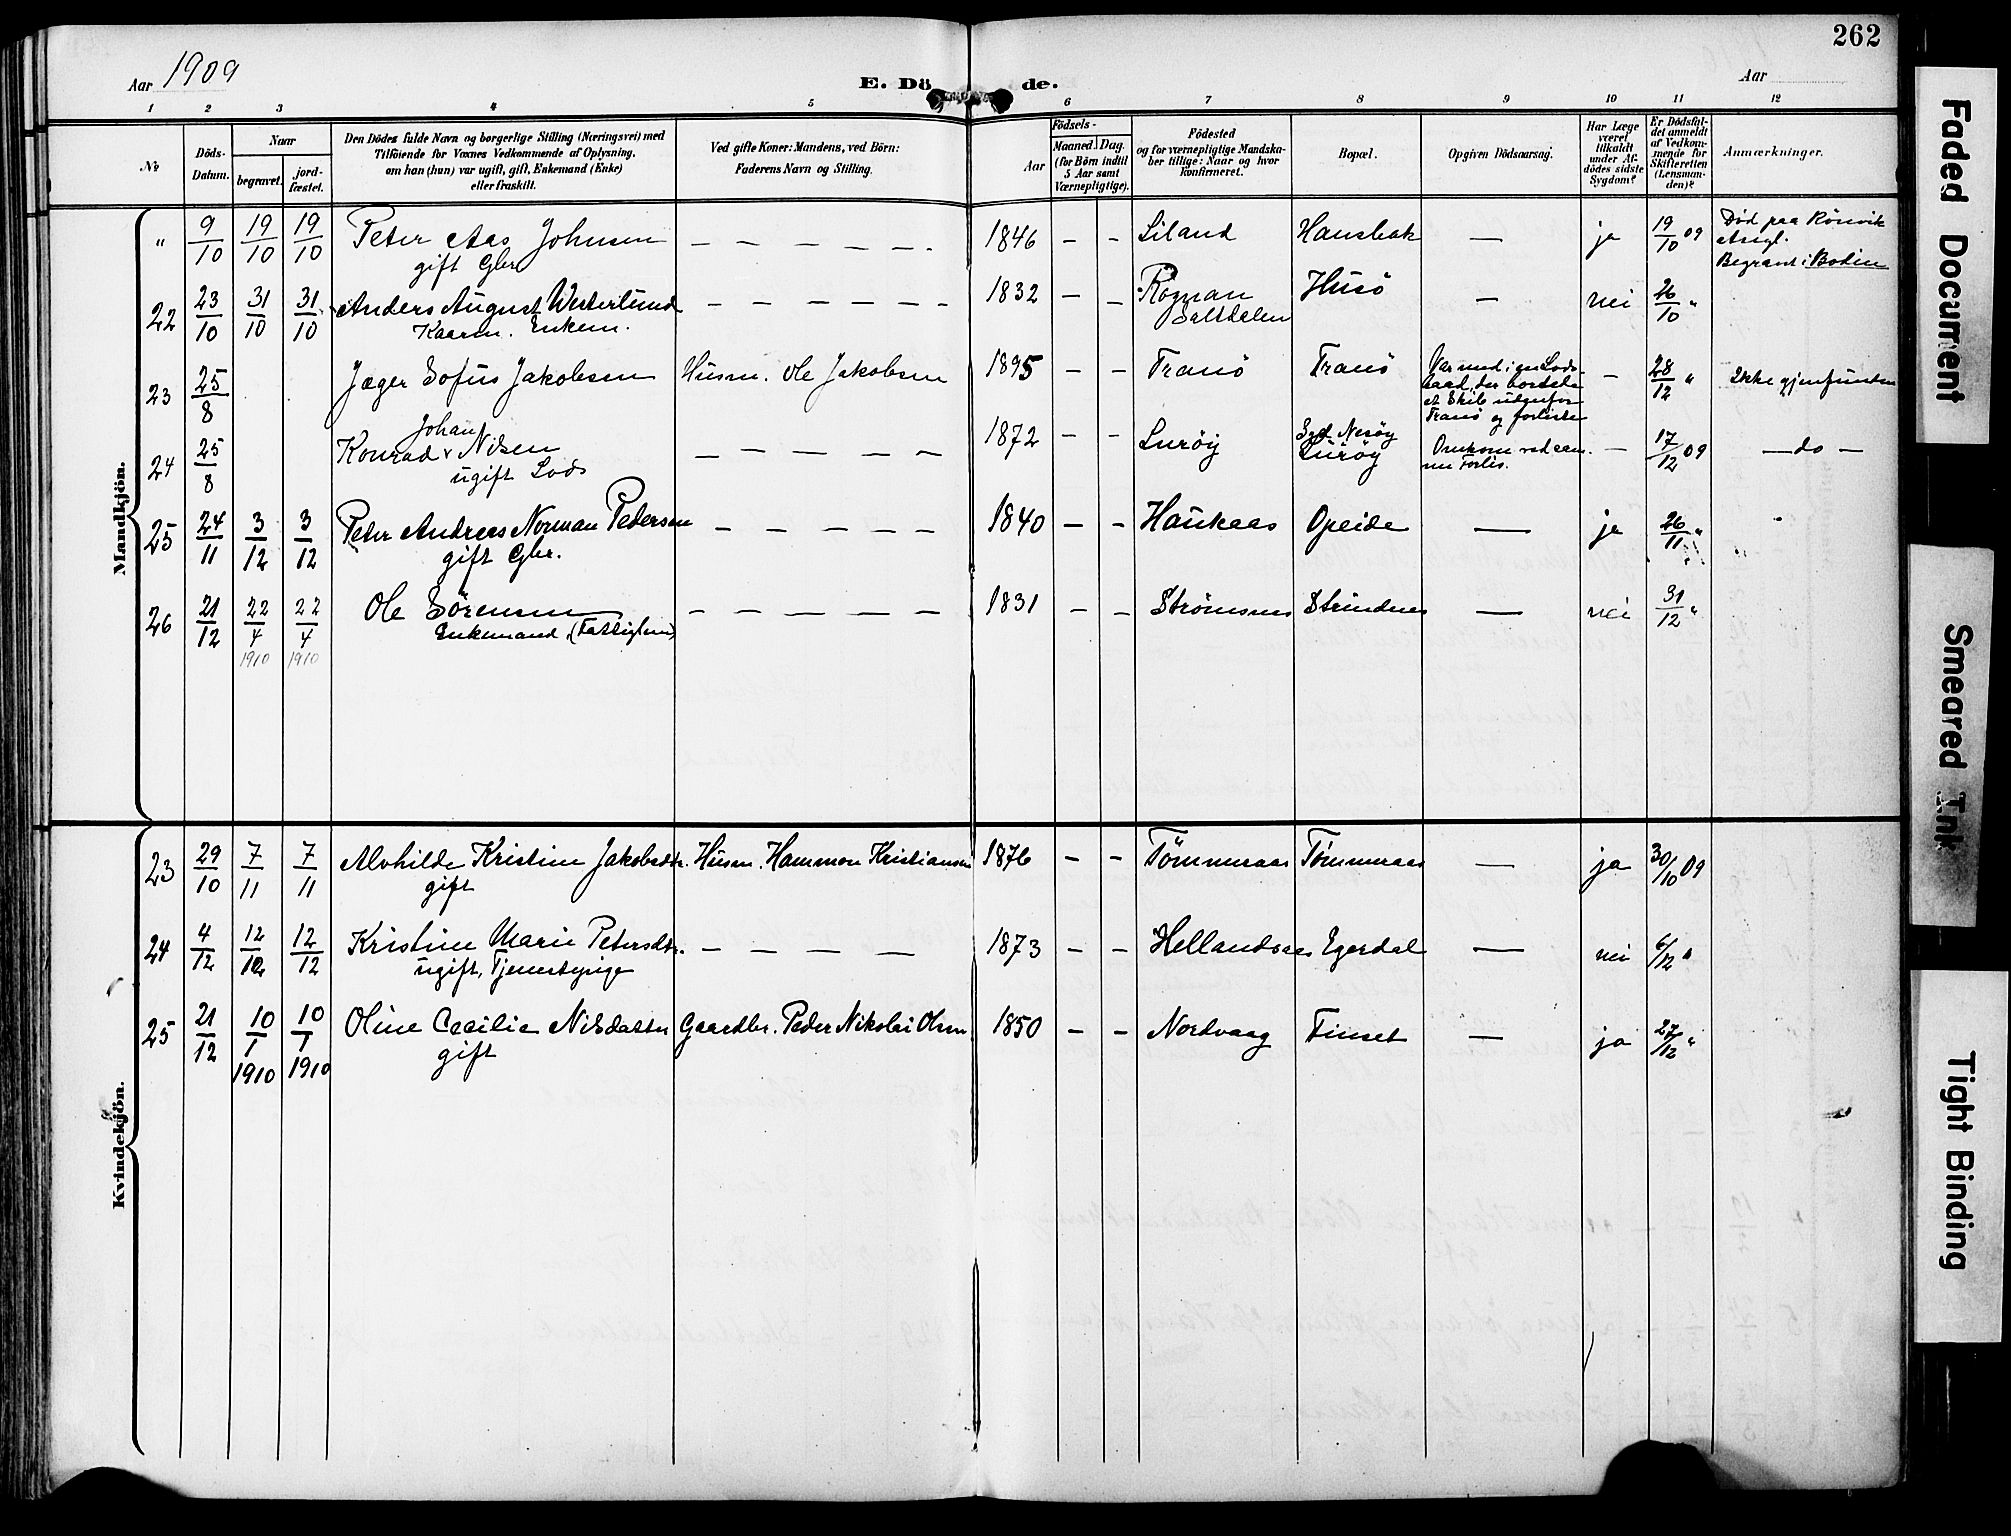 262
Aar 1909
E. Dö de.
Aar
1 2 3 4 5 6 7 8 9 10 11 12
No
Döds-
Datum.
Naar
begravet.
jord-
fæstet.
Den Dödes fulde Navn og borgerlige Stilling (Næringsvei) med
Tilföiende for Voxnes Vedkommende af Oplysning,
om han (hun) var ugift, gift, Enkemand (Enke)
eller fraskilt.
Ved gifte Koner: Mandens, ved Börn:
Faderens Navn og Stilling.
Födsels-
Aar
Maaned. Dag.
(for Börn indtil
5 Aar samt
Værnepligtige).
Födested
og for værnepligtige Mandska-
ber tillige: Naar og hvor
konfirmeret.
Bopæl.
Opgiven Dödsaarsag.
Har Læge
været
tilkaldt
under Af-
dödes sidste
Sygdom?
Er Dödsfal-
det anmeldt
af Vedkom-
mende for
Skifteretten
(Lensman-
den)?
Anmærkninger.
Mandkjön.
" 9/10 19/10 19/10 Peter Aas Johnsen — — — — — 1846 — — Liland Hansbak — ja 19/10 09 Död paa Rönvik
gift Gbr. Asyl.
Begravet i Bodin
22 23/10 31/10 31/10 Anders August Westerlund — — — — — — 1832 — — Rognan Husö — nei 26/10 "
Kaarm. Enkem. Saltdalen
23 25/8 Jæger Sofus Jakobsen Husm. Ole Jakobsen 1895 — — Tranö Tranö Var med i en Lods- — 28/12 " Ikke gjenfunden
baad, der bordede
et Skib udenfor
Tranö og forliste
24 25/8 Johan
Konrad v Nilsen — — — — — 1872 — — Luröy Nesöy
Luröy Omkom ved sam- — 17/12 09 — do —
ugift Lods me Forlis.
25 24/11 3/12 3/12 Peter Andreas Norman Pedersen — — — — 1840 — — Haukaas Opeide — ja 26/11 "
gift Gbr.
26 21/12 22/4 22/4 Ole Sörensen — — — — — 1831 — — Strömsnes Strindnes — nei 31/12 "
1910 1910 Enkemand, (Fattiglem)
Kvindekjön.
23 29/10 7/11 7/11 Alvhilde Kristine Jakobsdtr. Husm. Hammon Kristiansen 1876 — — Tömmeraas Tömmeraas — ja 30/10 09
gift
24 4/12 12/12 12/12 Kristine Marie Petersdtr. — — — — 1873 — — Hellandsnes Egerdal — nei 6/12 "
ugift, Tjenestepige
25 21/12 10/1 10/1 Oline Cecilie Nilsdatter Gaardbr. Peder Nikolai Olsen 1850 — — Nordvaag Finset — ja 27/12 "
1910 1910 gift
Faded Document
Smeared Ink
Tight Binding